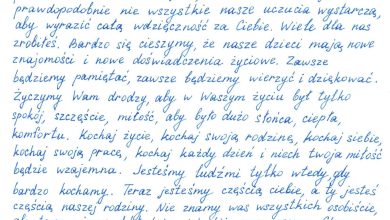 prawdopodobnie nie wszystkie nasze uczucia wystarczą,
aby wyrazić całą wdzięczność za Ciebie. Wiele dla nas
zrobiłeś. Bardzo się cieszymy, że nasze dzieci mają nowe
znajomości i nowe doświadczenia życiowe. Zawsze
będziemy pamiętać, zawsze będziemy wierzyć i dziękować.
Życzymy Wam drodzy, aby w Waszym życiu był tylko
spokój, szczęście, miłość, aby było dużo słońca, ciepła,
komfortu. Kochaj życie, kochaj swoją rodzinę, kochaj siebie,
kochaj swoją pracę, kochaj każdy dzień i niech twoja miłość
będzie wzajemna. Jesteśmy ludźmi tylko wtedy, gdy
bardzo kochamy. Teraz jesteśmy częścią ciebie, a ty jesteś
częścią naszej rodziny. Nie znamy was wszystkich osobiście,